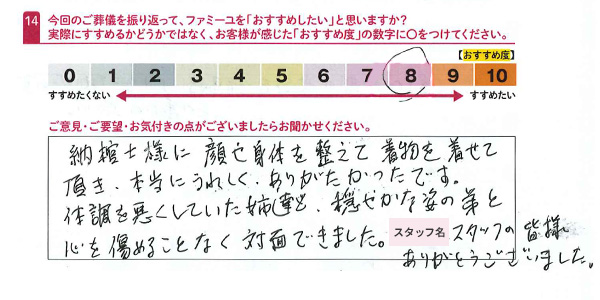 14 今回のご葬儀を振り返って、ファミーユを「おすすめしたい」と思いますか?
実際にすすめるかどうかではなく、お客様が感じた「おすすめ度」の数字に○をつけてください。
【おすすめ度】
0 1 2 3 4 5 6 7 8 9 10
すすめたくない すすめたい
ご意見・ご要望・お気付きの点がございましたらお聞かせください。
納棺士様に顔や身体を整えて着物を着せて
頂き、本当にうれしく、ありがたかったです。
体調を悪くしていた姉達も、穏やかな姿の弟と
心を傷めることなく対面できました。
スタッフ名 スタッフの皆様
ありがとうございました。